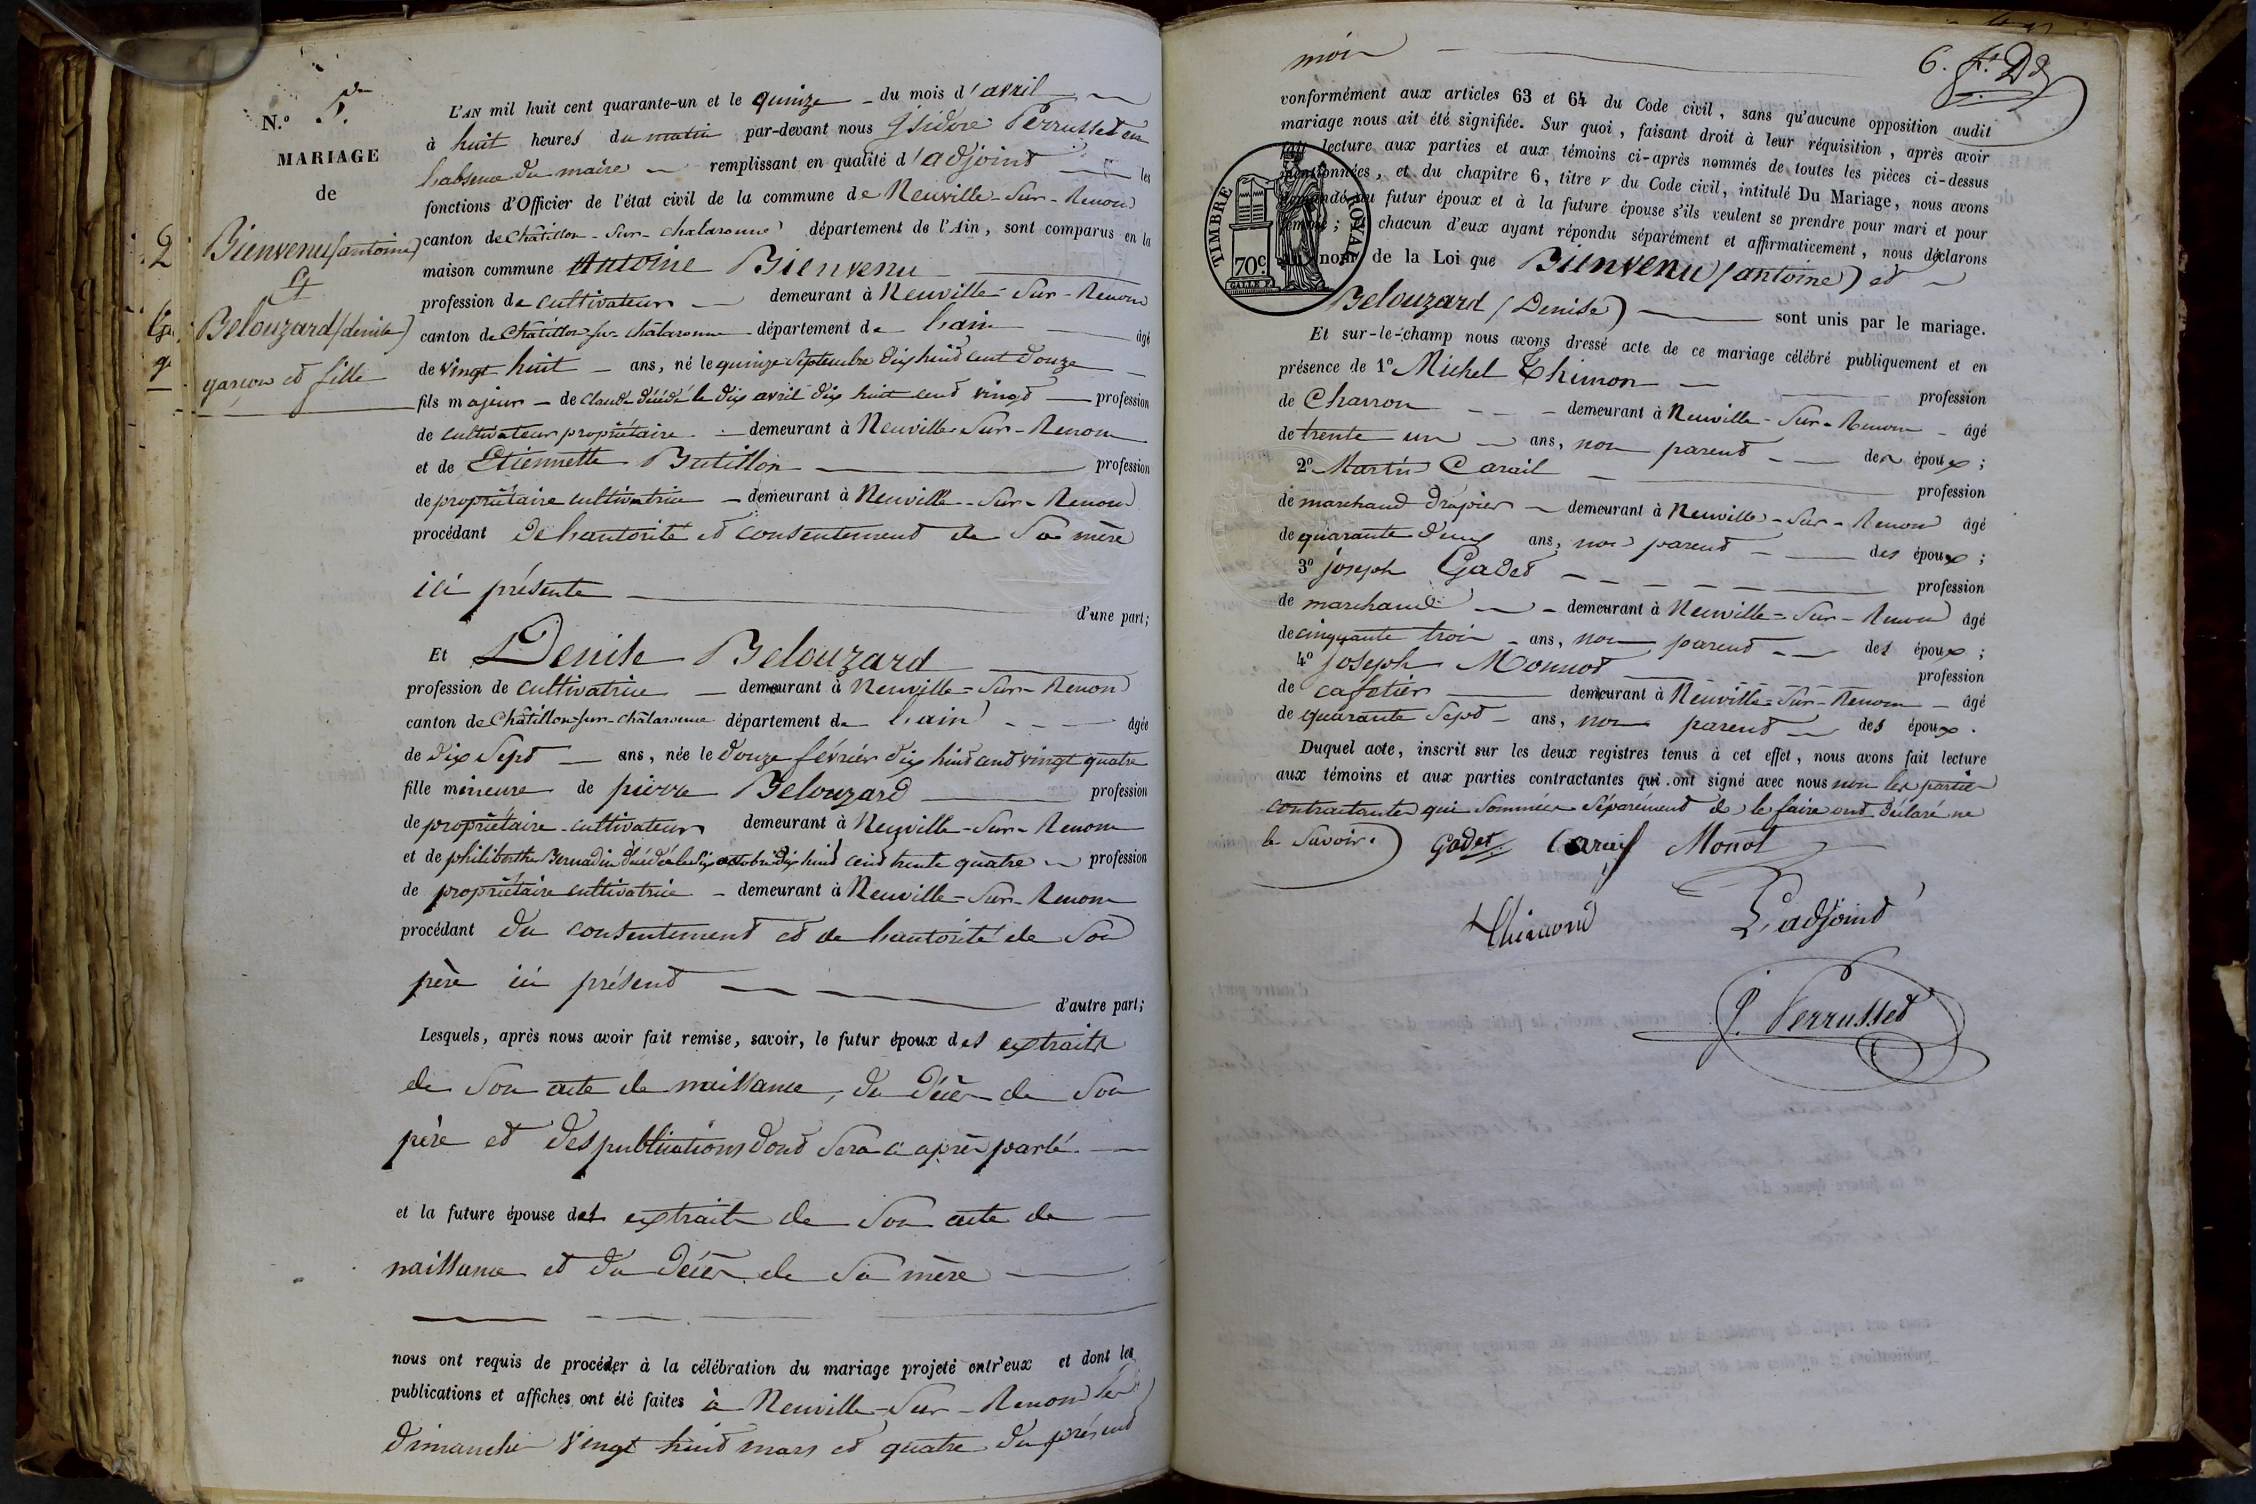 N.º 5.
MARIAGE
de
Bienvenu (antoine)
et
Belouzard (denise)
garçon et fille
L'AN mil huit cent quarante-un et le quinze du mois d'avril
à huit heures du matin par-devant nous Isidore Perrusset en
l'absence du maire remplissant en qualité d'adjoint les
fonctions d'Officier de l'état civil de la commune de Neuville-Sur-Renom
canton de Châtillon-Sur-chalaronne département de l'Ain, sont comparus en la
maison commune Antoine Bienvenu
profession de cultivateur demeurant à Neuville-Sur-Renom
canton de Châtillon-sur-châlaronne département de l'ain âgé
de vingt huit ans, né le quinze Septembre dix huit cent douze
fils majeur de claude décédé le dix avril dix huit cent vingt profession
de cultivateur propriétaire demeurant à Neuville-Sur-Renom
et de Etiennette Butillon profession
de propriétaire cultivatrice demeurant à Neuville-Sur-Renom
procédant De l'autorité et consentement de Sa mère
ici présente
d'une part;
Et Denise Belouzard
profession de cultivatrice demeurant à Neuville-Sur-Renom
canton de Châtillon-sur-châlaronne département de l'ain âgée
de dix Sept ans, née le douze février dix huit cent vingt quatre
fille mineure de pierre Belouzard profession
de propriétaire-cultivateur demeurant à Neuville-Sur-Renom
et de philiberthe Bernadin décédée le six octobre dix huit cent trente quatre profession
de propriétaire cultivatrice demeurant à Neuville-Sur-Renom
procédant du consentement et de l'autorité de Son
père ici présent
d'autre part;
Lesquels, après nous avoir fait remise, savoir, le futur époux des extraits
de Son acte de naissance, du Décès de Son
père et des publications dont Sera ci après parlé.
et la future épouse des extraits de Son acte de
naissance et du Décès de Sa mère
nous ont requis de procéder à la célébration du mariage projeté entr'eux et dont les
publications et affiches ont été faites à Neuville-Sur-Renom les
dimanche vingt huit mars et quatre du présent
6.
mois
conformément aux articles 63 et 64 du Code civil, sans qu'aucune opposition audit
mariage nous ait été signifiée. Sur quoi, faisant droit à leur réquisition, après avoir
fait lecture aux parties et aux témoins ci-après nommés de toutes les pièces ci-dessus
mentionnées, et du chapitre 6, titre v du Code civil, intitulé Du Mariage, nous avons
demandé au futur époux et à la future épouse s'ils veulent se prendre pour mari et pour
femme; chacun d'eux ayant répondu séparément et affirmativement, nous déclarons
au nom de la Loi que Bienvenu (antoine) et
Belouzard (Denise) sont unis par le mariage.
TIMBRE ROYAL
70c.
Et sur-le-champ nous avons dressé acte de ce mariage célébré publiquement et en
présence de 1º Michel Thimon profession
de Charron demeurant à Neuville-Sur-Renom âgé
de trente un ans, non parent des époux;
2º Martin Carail profession
de marchand drapier demeurant à Neuville-Sur-Renom âgé
de quarante deux ans, non parent des époux;
3º joseph Gadet profession
de marchand demeurant à Neuville-Sur-Renom âgé
de cinquante trois ans, non parent des époux;
4º joseph Monnot profession
de cafetier demeurant à Neuville-Sur-Renom âgé
de quarante Sept ans, non parent des époux.
Duquel acte, inscrit sur les deux registres tenus à cet effet, nous avons fait lecture
aux témoins et aux parties contractantes qui ont signé avec nous non les parties
contractantes qui Sommées Séparément de le faire ont déclaré ne
le Savoir.
Gadet Carail Monot
L'adjoint
J. Perrusset